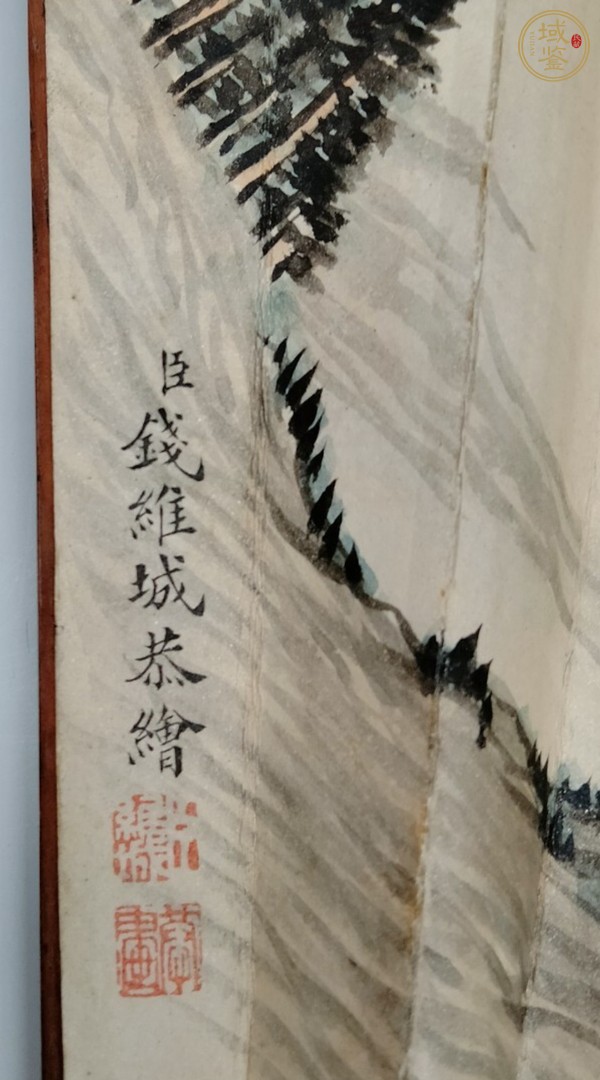 域鉴
臣錢維城恭繪